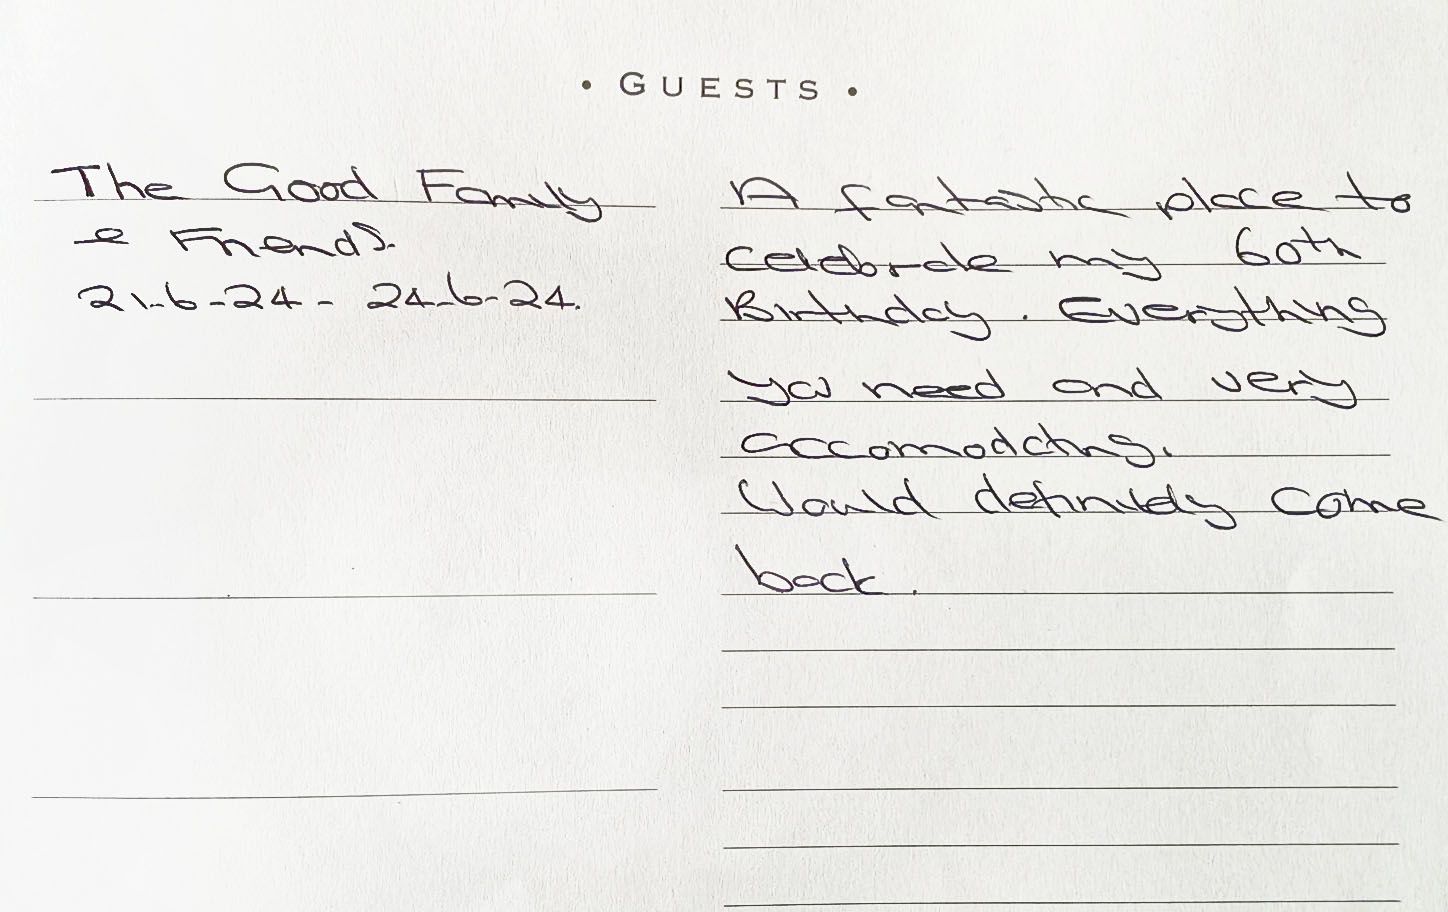 • GUESTS •
The Good Family
& Friends.
21-6-24 - 24-6-24.
A fantastic place to
celebrate my 60th
Birthday. Everything
you need and very
accomodating.
Would definitely come
back.